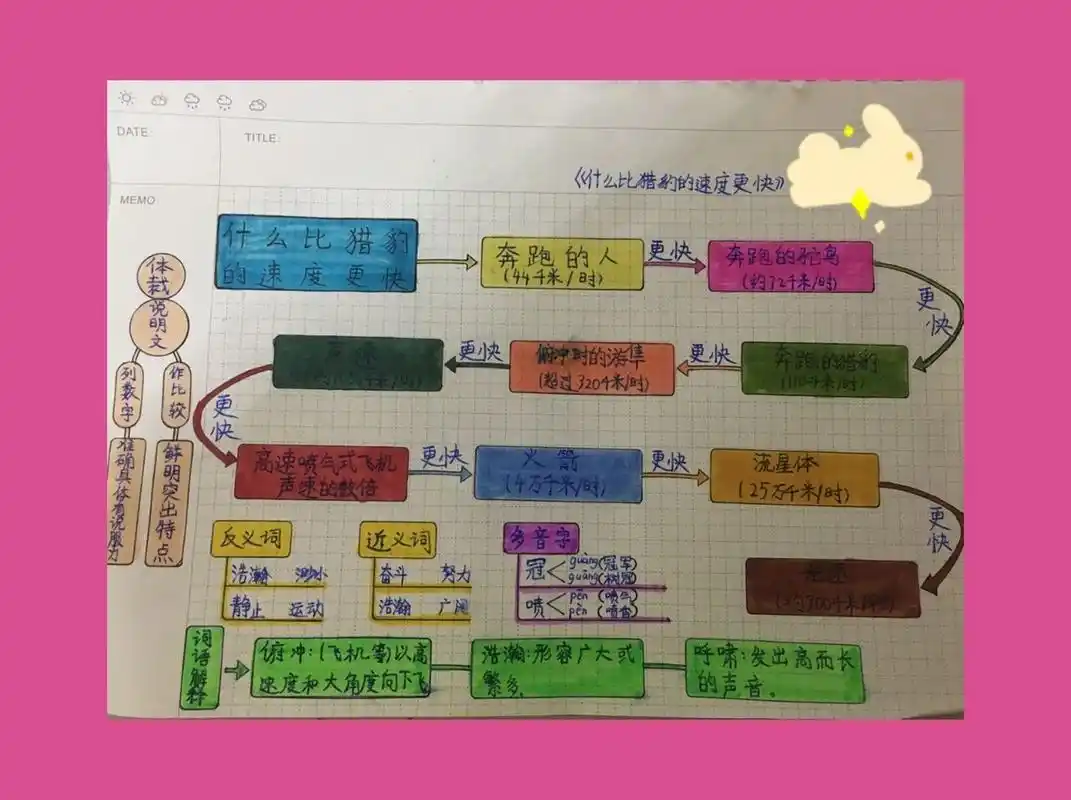 DATE:
TITLE:
MEMO
《什么比猎豹的速度更快》
什么比猎豹
的速度更快
奔跑的人
(44千米/时)
更快
奔跑的鸵鸟
(约72千米/时)
更快
奔跑的猎豹
(110千米/时)
更快
俯冲时的游隼
(超过320千米/时)
更快
声速
更快
高速喷气式飞机
声速的数倍
更快
火箭
(4万千米/时)
更快
流星体
(25万千米/时)
更快
光速
体裁
说明文
列数字
作比较
准确具体有说服力
鲜明突出特点
反义词
浩瀚 渺小
静止 运动
近义词
奋斗 努力
浩瀚 广阔
多音字
冠
guàng(冠军)
guāng(树冠)
喷
pēn(喷气)
pèn(喷香)
词语解释
俯冲:(飞机等)以高
速度和大角度向下飞
浩瀚:形容广大或
繁多。
呼啸:发出高而长
的声音。